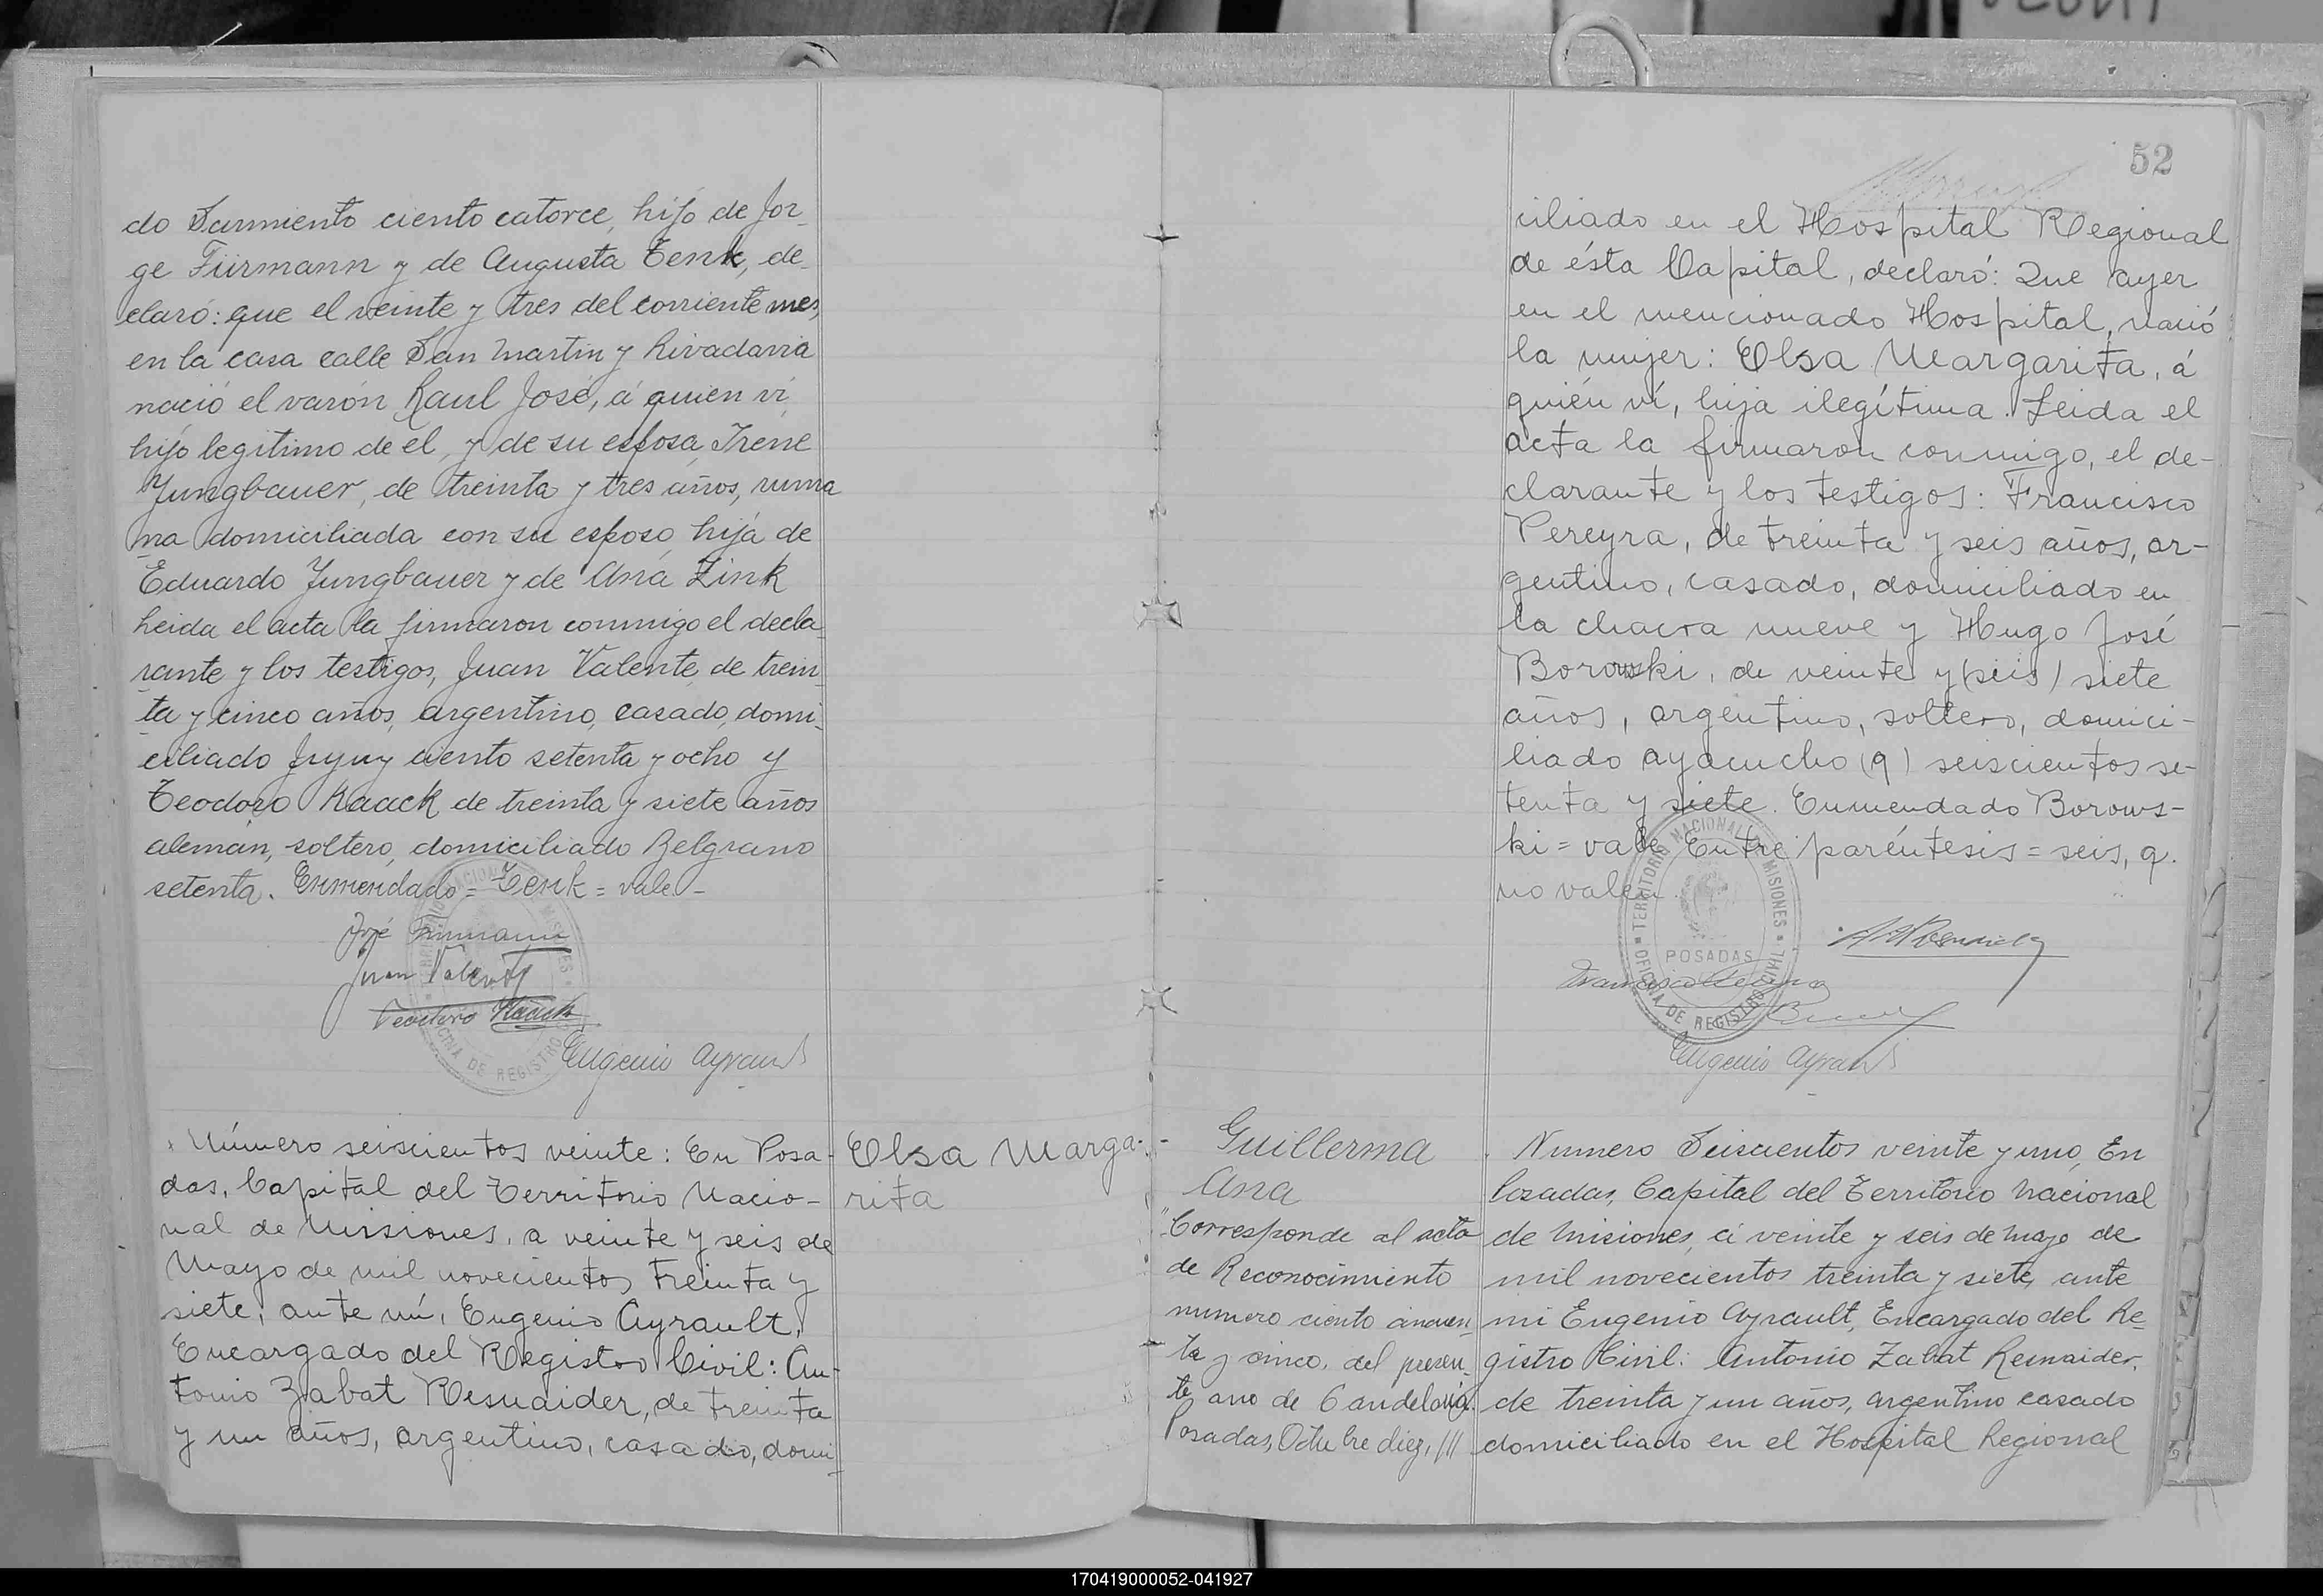 do Sarmiento ciento catorce, hijo de Jor_
ge Fürmann y de Augusta Tenk, de_
claró: que el veinte y tres del corriente mes,
en la casa calle San Martin y Rivadavia
nació el varón Raul José, á quien vi,
hijo legitimo de él, y de su esposa, Irene
Jungbauer, de treinta y tres años, ruma
na domiciliada con su esposo, hija de
Eduardo Jungbauer y de Ana Zink
Leida el acta la firmaron conmigo el decla_
rante y los testigos, Juan Valente, de trein_
ta y cinco años, argentino, casado, domi_
ciliado Jujuy ciento setenta y ocho y
Teodoro Kaack de treinta y siete años
alemán, soltero, domiciliado Belgrano
setenta. Enmendado = Tenk = vale -
José Fürmann
Juan Valente
Teodoro Kaack
Eugenio Ayrault
Número seiscientos veinte: En Posa-
das, Capital del Territorio Nacio-
nal de Missiones, a veinte y seis de
Mayo de mil novecientos treinta y
siete, ante mí, Eugenio Ayrault,
Encargado del Registro Civil: An-
tonio Zabat Resnaider, de treinta
y un años, argentino, casado, domi-
Elsa Marga-
rita
52
ciliado en el Hospital Regional
de ésta Capital, declaró: Que ayer
en el mencionado Hospital, nació
la mujer: Elsa Margarita, á
quién ví, hija ilegítima. Leida el
acta la firmaron conmigo, el de-
clarante y los testigos: Francisco
Pereyra, de treinta y seis años, ar-
gentino, casado, domiciliado en
la chacra nueve y Hugo José
Borowski, de veinte y (seis) siete
años, argentino, soltero, domici-
liado ayacucho (q) seiscientos se-
tenta y siete. Enmendado Borows-
ki = vale Entre paréntesis = seis, q.
no valen
TERRITORIO NACIONAL MISIONES
POSADAS
OFICINA DE REGISTRO CIVIL
Francisco Pereyra
Eugenio Ayrault
Guillerma
Ana
"Corresponde al acta
de Reconocimiento
numero ciento cincuen_
ta y cinco, del presen_
te ano de Candelaria.
Posadas, Octubre diez, ///
Numero Seiscientos veinte y uno, En
Posadas, Capital del Territorio Nacional
de Misiones, á veinte y seis de Mayo de
mil novecientos treinta y siete, ante
mi Eugenio Ayrault, Encargado del Re_
gistro Civil: Antonio Zabat Resnaider,
de treinta y un años, argentino casado
domiciliado en el Hospital Regional
170419000052-041927